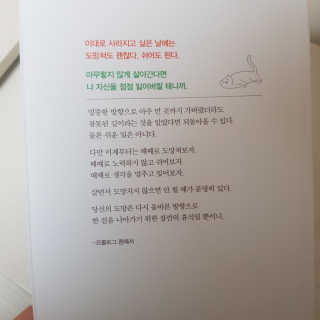 이대로 사라지고 싶은 날에는
도망쳐도 괜찮다, 쉬어도 된다.
아무렇지 않게 살아간다면
나 자신을 점점 잃어버릴 테니까.
엉뚱한 방향으로 아주 먼 곳까지 가버렸더라도
잘못된 길이라는 것을 알았다면 되돌아올 수 있다.
물론 쉬운 일은 아니다.
다만 이제부터는 때때로 도망쳐보자.
때때로 노력하지 않고 쉬어보자.
때때로 생각을 멈추고 잊어보자.
살면서 도망치지 않으면 안 될 때가 분명히 있다.
당신의 도망은 다시 올바른 방향으로
한 걸음 나아가기 위한 잠깐의 휴식일 뿐이니.
-프롤로그 중에서